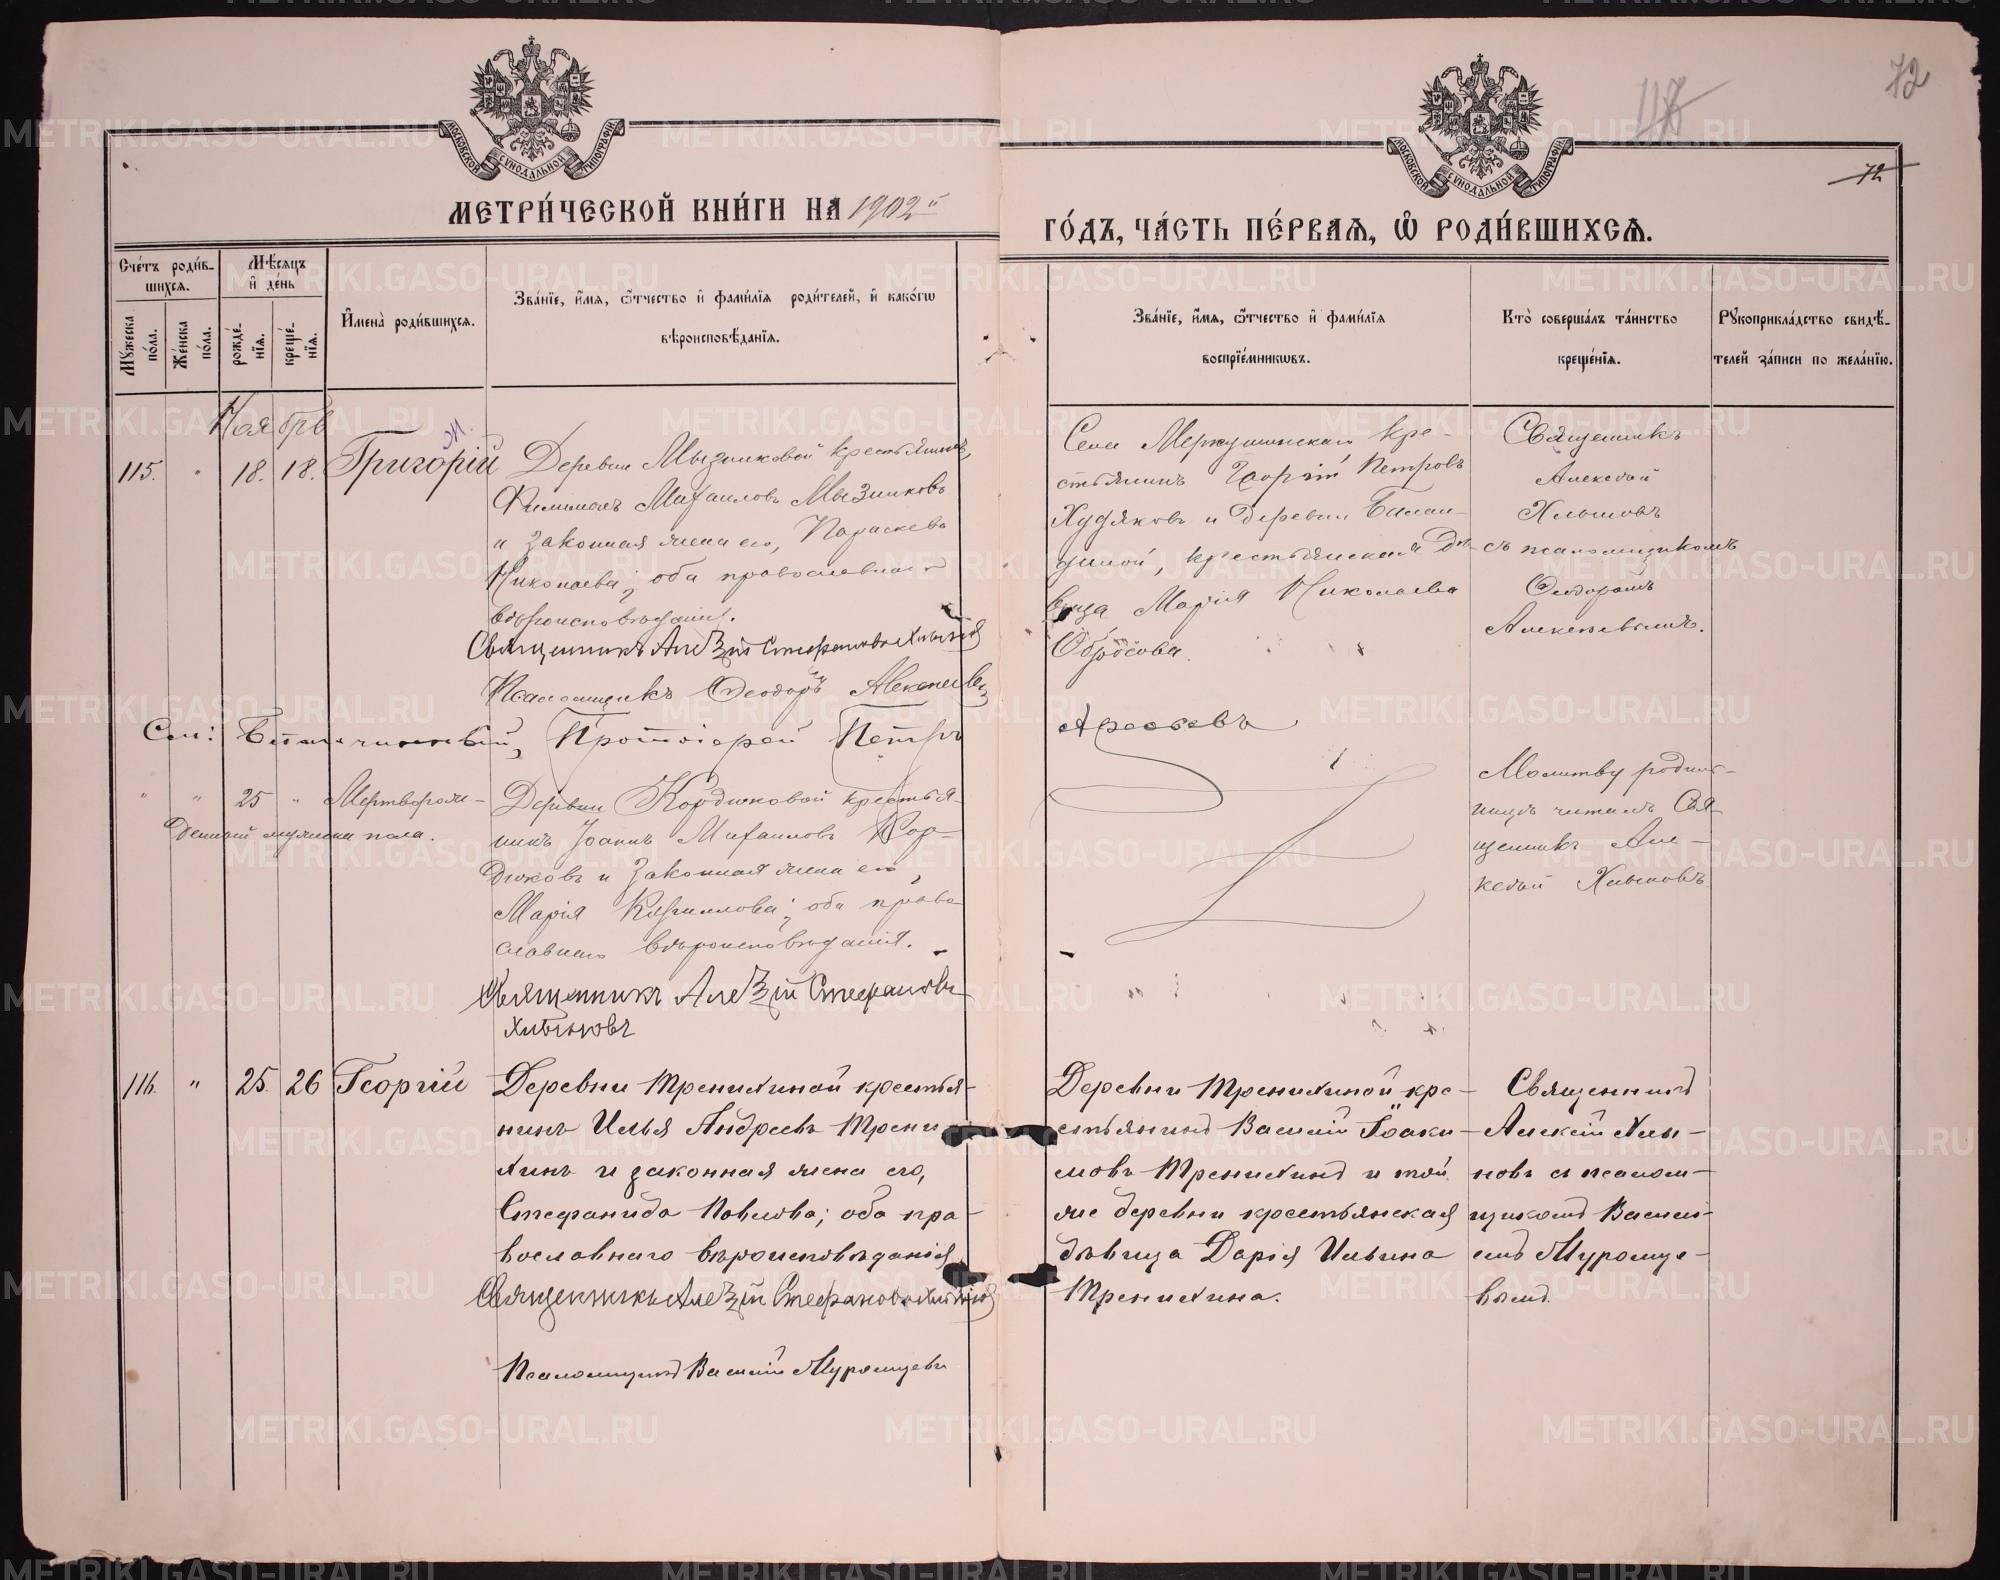 72
118
72
МОСКОВСКОЙ СУНОДАЛЬНОЙ ТИПОГРАФІИ
МОСКОВСКОЙ СУНОДАЛЬНОЙ ТИПОГРАФІИ
МЕТРИ́ЧЕСКОЙ КНИ́ГИ НА 1902й
ГО́ДЪ, ЧА́СТЬ ПЕ́РВАѦ, Ѽ РОДИ́ВШИХСѦ.
Сче́тъ роди́в-
шихсѧ.
Мꙋ́жеска по́ла.
Же́нска по́ла.
Мѣ́сѧцъ
и҆ де́нь
рожде́-
нїѧ.
креще́-
нїѧ.
И҆мена̀ роди́вшихсѧ.
Зва́нїе, и҆́мѧ, ѻ҆́тчество и҆ фами́лїѧ роди́телей, и҆ како́гѡ
вѣроисповѣ́данїѧ.
Зва́нїе, и҆́мѧ, ѻ҆́тчество и҆ фами́лїѧ
воспрїе́мникѡвъ.
Кто̀ соверша́лъ та́инство
креще́нїѧ.
Рꙋкоприкла́дство свидѣ́-
телей за́писи по жела́нїю.
Ноябрь
115. " 18. 18. Григорій
Деревни Мызниковой крестьянинъ,
Филимонъ Михаиловъ Мызниковъ
и законная жена его, Параскева
Николаева; оба православнаго
вѣроисповѣданія.
Священникъ Алексій Стефановъ Хлыновъ
Псаломщикъ Ѳеодоръ Алексѣевъ
Села Меркушинскаго кре-
стьянинъ Георгій Петровъ
Худяковъ и деревни Балан-
диной, крестьянская дѣ-
вица Марія Николаева
Обросова.
Священникъ
Алексѣй
Хлыновъ
съ псаломщикомъ
Ѳеодоромъ
Алексѣевымъ.
Протоіерей Петръ
" " 25 " Мертворож-
денный мужескаго пола.
Деревни Кордюковой крестья-
нинъ Іоаннъ Михаиловъ Кор-
дюковъ и законная жена его,
Марія Кириллова; оба право-
славнаго вѣроисповѣданія.
Священникъ Алексій Стефановъ
Хлыновъ
Молитву родиль-
ницѣ читалъ Свя-
щенникъ Але-
ксѣй Хлыновъ.
116. " 25. 26 Георгій
Деревни Тренихиной крестья-
нинъ Илья Андреевъ Трени-
хинъ и законная жена его,
Стефанида Павлова; оба пра-
вославнаго вѣроисповѣданія
Священникъ Алексій Стефановъ Хлыновъ
Псаломщикъ Василій Муромцевъ
Деревни Тренихиной кре-
стьянинъ Василій Іоаки-
мовъ Тренихинъ и той
же деревни крестьянская
дѣвица Дарія Ильина
Тренихина.
Священникъ
Алексій Хлы-
новъ съ псалом-
щикомъ Васили-
емъ Муромце-
вымъ.
METRIKI.GASO-URAL.RU